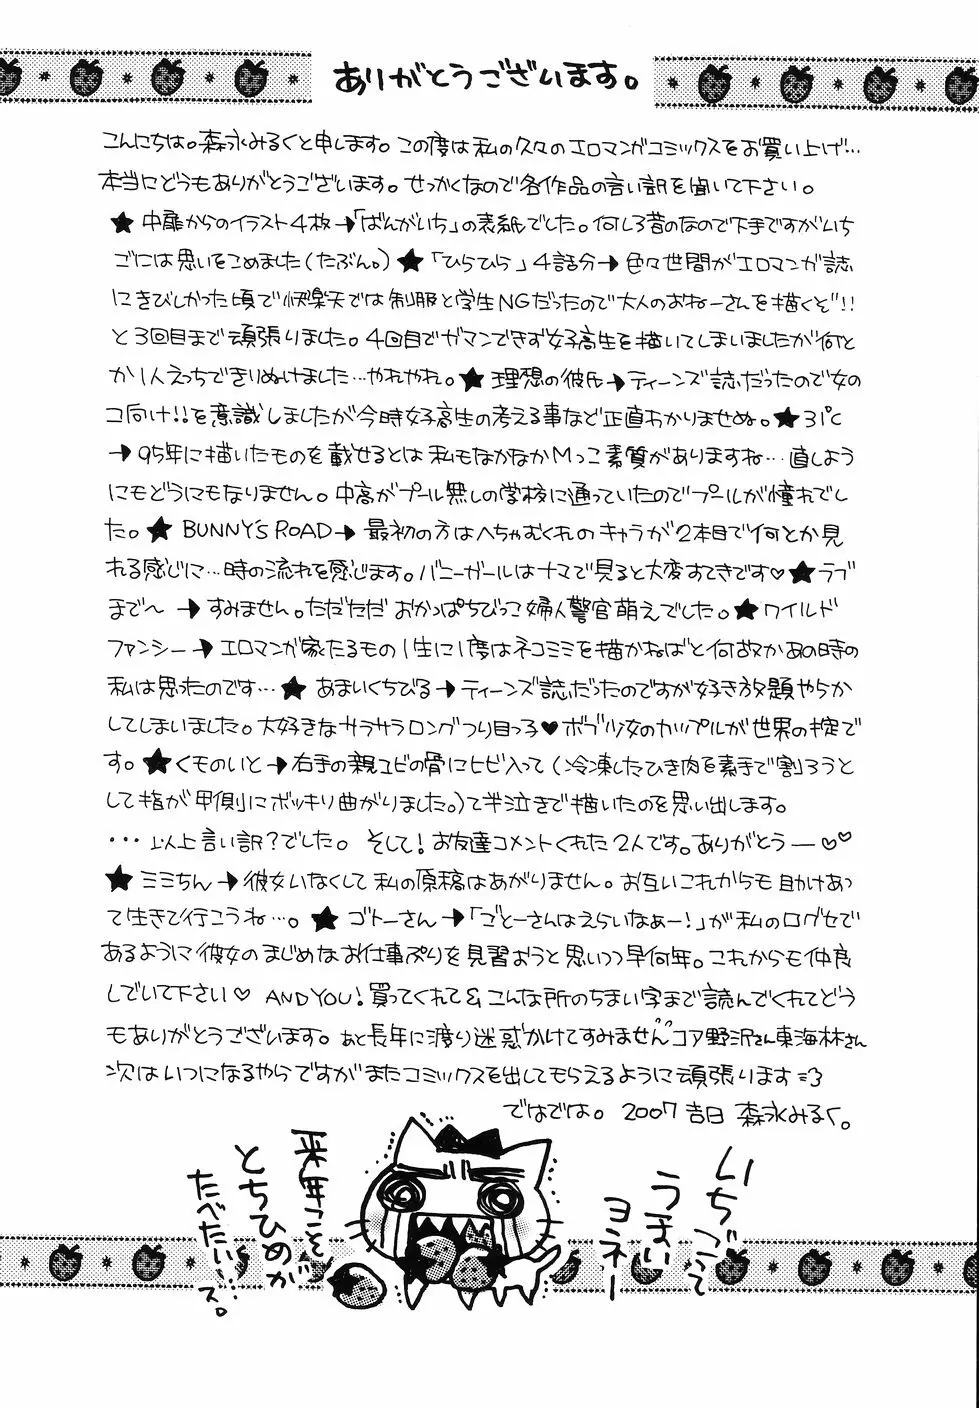 ありがとうございます。
こんにちは。森永みるくと申します。この度は私の久々のエロマンガコミックスをお買い上げ…
本当にどうもありがとうございます。せっかくなので各作品の言い訳を聞いて下さい。
★中扉からのイラスト4枚→「ばんがいち」の表紙でした。何しろ昔のなので下手ですがいち
ごには思いをこめました(たぶん。)★「ひらひら」4話分→色々世間がエロマンガ誌
にきびしかった頃で快楽天では制服と学生NGだったので大人のおねーさんを描くぞ!!
と3回目まで頑張りました。4回目でガマンできず女子高生を描いてしまいましたが何と
か1人えっちできりぬけました…やれやれ。★理想の彼氏→ティーンズ誌だったので女の
コ向け!!を意識しましたが今時女子高生の考える事など正直わかりませぬ。★31℃
→95年に描いたものを載せるとは私もなかなかMっこ素質がありますね…直しよう
にもどうにもなりません。中高がプール無しの学校に通っていたのでプールが憧れでし
た。★BUNNY'S ROAD→最初の方はへちゃむくれのキャラが2本目で何とか見
れる感じに…時の流れを感じます。バニーガールはナマで見ると大変すてきです♡★ラブ
まで〜→すみません。ただただおかっぱちびっこ婦人警官萌えでした。★ワイルド
ファンシー→エロマンガ家たるもの1生に1度はネコミミを描かねばと何故かあの時の
私は思ったのです…★あまいくちびる→ティーンズ誌だったのですが好き放題やらか
してしまいました。大好きなサラサラロングつり目っ子♥ボブ少女のカップルが世界の掟で
す。★くものいと→右手の親ユビの骨にヒビ入って(冷凍したひき肉を素手で割ろうと
して指が甲側にボッキリ曲がりました。)て半泣きで描いたのを思い出します。
…以上言い訳?でした。そして!お友達コメントくれた2人です。ありがとうー♡♡
★ミミちん→彼女いなくして私の原稿はあがりません。お互いこれからも助けあっ
て生きて行こうね…。★ゴトーさん→「ごとーさんはえらいなぁー!」が私の口グセで
あるように彼女のまじめなお仕事ぷりを見習おうと思いつつ早何年。これからも仲良
しでいて下さい♡ AND YOU!買ってくれて&こんな所のちまい字まで読んでくれてどう
もありがとうございます。あと長年に渡り迷惑かけてすみません コア野沢さん東海林さん
次はいつになるやらですがまたコミックスを出してもらえるように頑張ります=3
ではでは。2007 吉日 森永みるく。
いちごって
うまい
ヨネー
来年こそ
とちひめが
たべたいぃ…
ス。